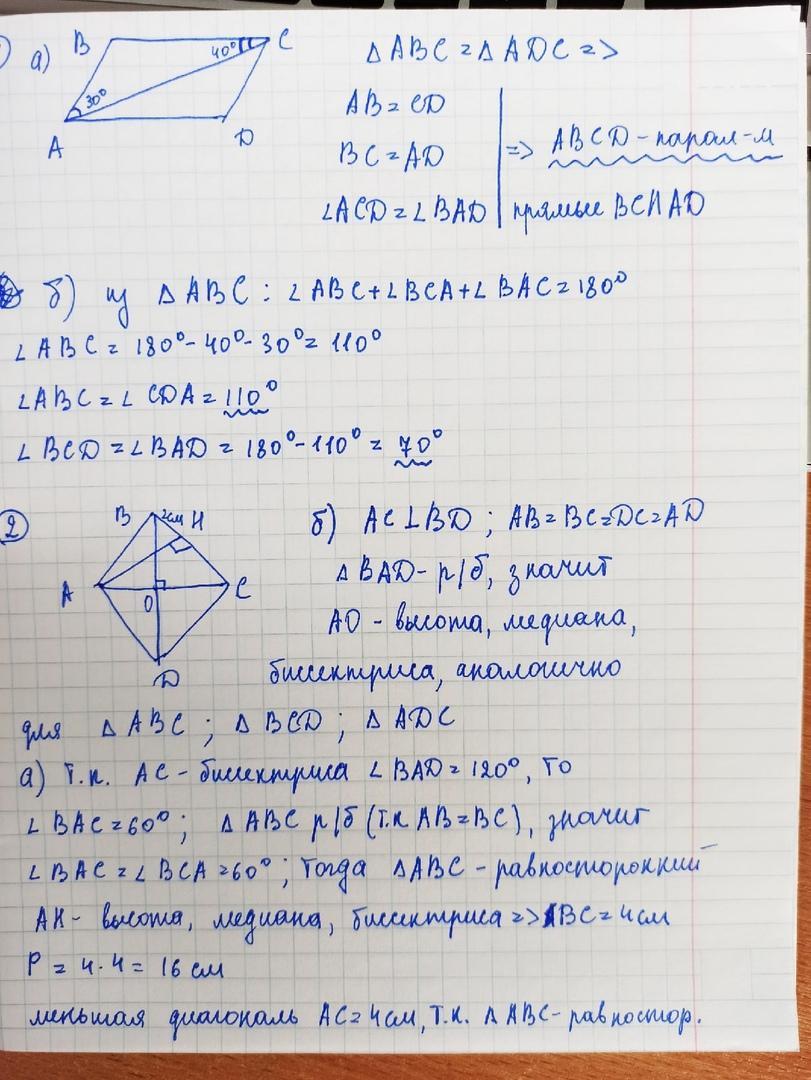 а) B 40° C
30°
A D
△ABC = △ADC =>
AB = CD
BC = AD => ABCD - парал-м
∠ACD = ∠BAD прямые BC∥AD
б) из △ABC: ∠ABC+∠BCA+∠BAC=180°
∠ABC = 180°-40°-30°= 110°
∠ABC = ∠CDA = 110°
∠BCD = ∠BAD = 180°-110° = 70°
2 B 2см H
A O C
D
б) AC⊥BD ; AB=BC=DC=AD
△BAD- р/б, значит
AO - высота, медиана,
биссектриса, аналогично
для △ABC ; △BCD ; △ADC
а) Т.к. AC - биссектриса ∠BAD = 120°, то
∠BAC=60° ; △ABC р/б (т.к AB=BC), значит
∠BAC = ∠BCA = 60° ; тогда △ABC - равносторонний
AH - высота, медиана, биссектриса => BC = 4 см
P = 4·4 = 16 см
меньшая диагональ AC=4см, т.к. △ABC- равностор.